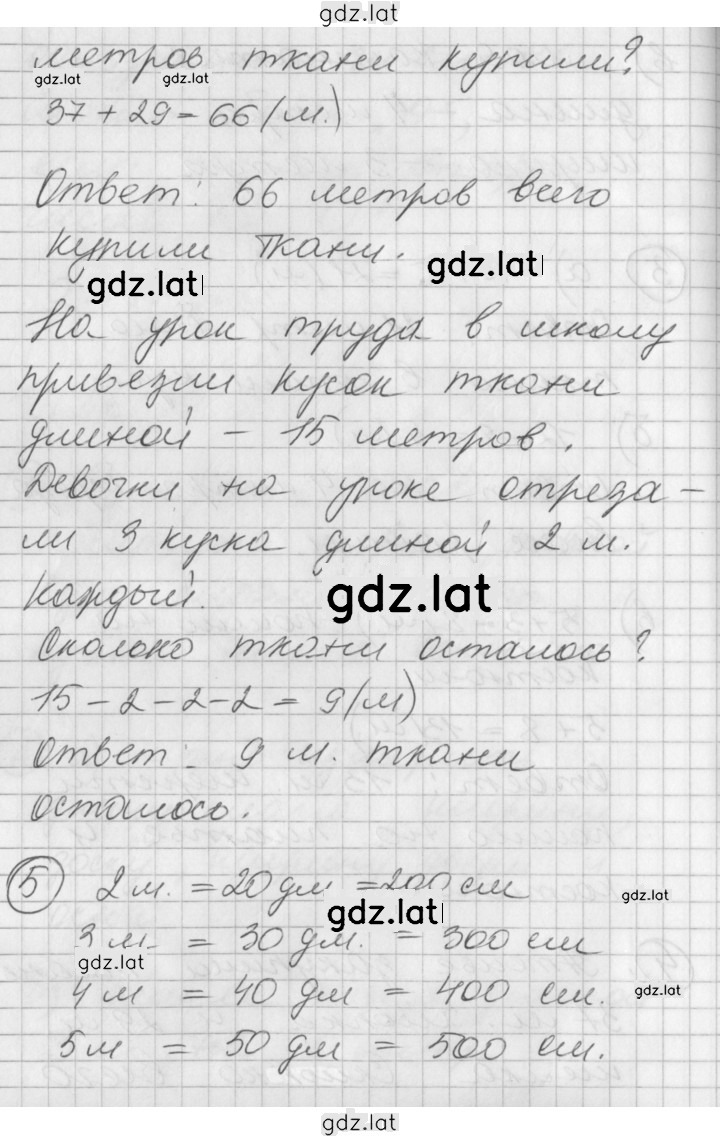 gdz.lat
метров ткани купили?
gdz.lat gdz.lat
37 + 29 = 66 (м.)
Ответ: 66 метров всего
купили ткани.
gdz.lat gdz.lat
На урок труда в школу
привезли кусок ткани
длиной – 15 метров.
Девочки на уроке отреза-
ли 3 куска длиной 2 м.
каждый.
gdz.lat
Сколько ткани осталось?
15 – 2 – 2 – 2 = 9 (м)
Ответ: 9 м. ткани
осталось.
5 2 м. = 20 дм = 200 см
gdz.lat
gdz.lat
3 м. = 30 дм. = 300 см
gdz.lat
4 м = 40 дм = 400 см.
gdz.lat
5 м = 50 дм = 500 см.
gdz.lat